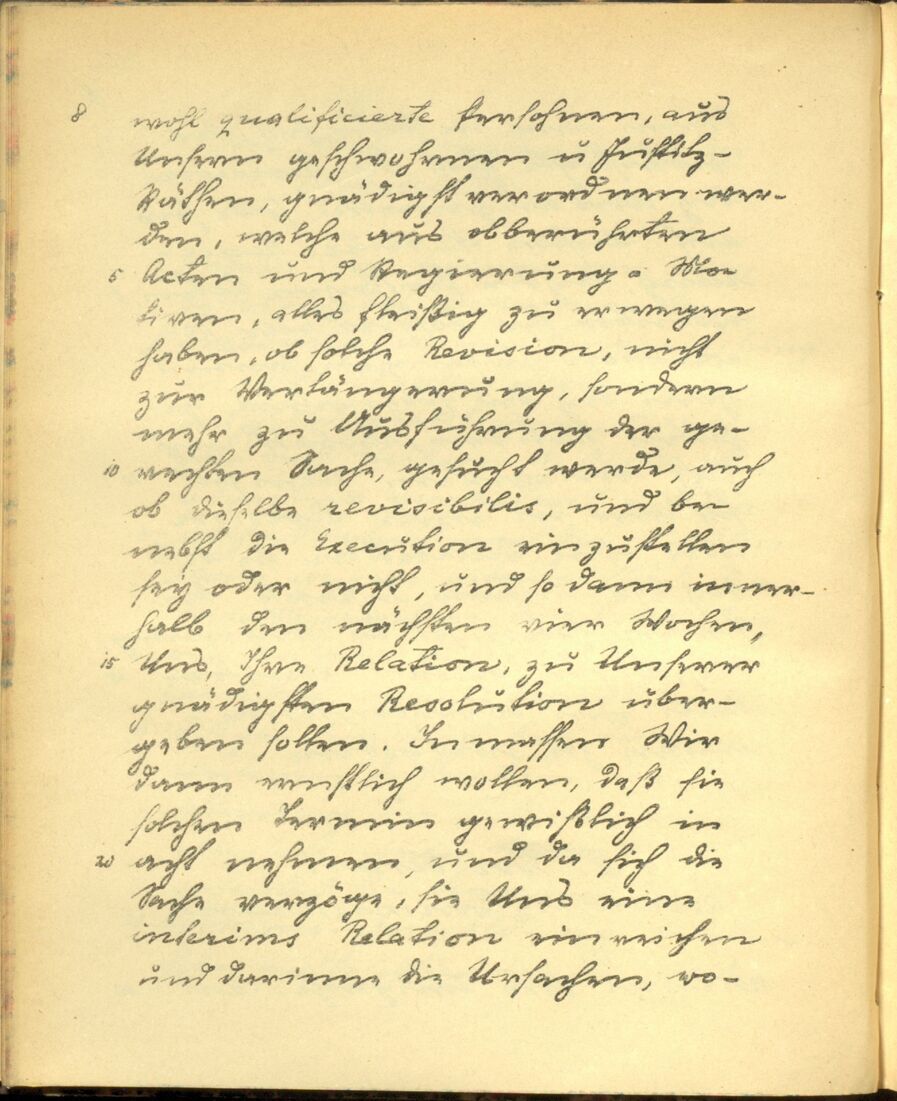 8 wohl qualificierte Persohnen, aus
Unsern geschwohrnen u Justitz-
Räthen, gnädigst verordnen wer-
den, welche aus obberührten
5 Acten und Regierungs Mo-
tiven, alles fleißig zu erwegen
haben, ob solche Revision, nicht
zur Verlängerung, sondern
mehr zu Ausführung der ge-
10 rechten Sache, gesucht werde, auch
ob dieselbe revisibilis, und be-
nebst die Execution einzustellen
sey oder nicht, und so dann inner-
halb den nächsten vier Wochen,
15 Uns, Ihre Relation, zu Unserer
gnädigsten Resolution über-
geben sollen. Inmassen Wir
dann ernstlich wollen, daß sie
solchen Termin gewißlich in
20 acht nehmen, und da sich die
Sache verzöge, sie Uns eine
interims Relation einreichen
und darinne die Ursachen, wo-